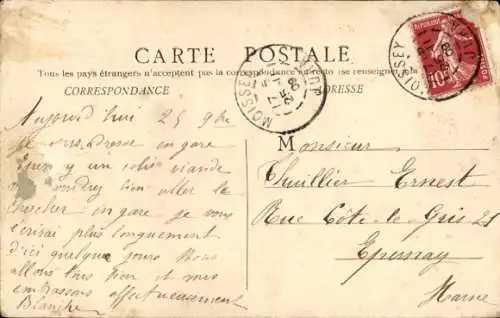 CARTE POSTALE
Tous les pays étrangers n'acceptent pas la correspondance au recto (se renseigner à la
CORRESPONDANCE
ADRESSE
MOISSEY
JURA
MOISSEY
JURA
10
Aujourd'hui 25 9bre
Je vous adresse en gare
Epernay un colis viande
vous voudrez bien aller le
chercher en gare je vous
écrirai plus longuement
d'ici quelques jours Nous
allons tous bien et vous
embrassons affectueusement
Blanche
Monsieur
Thuillier Ernest
Rue Côte-le-Gris 21
Epernay
Marne